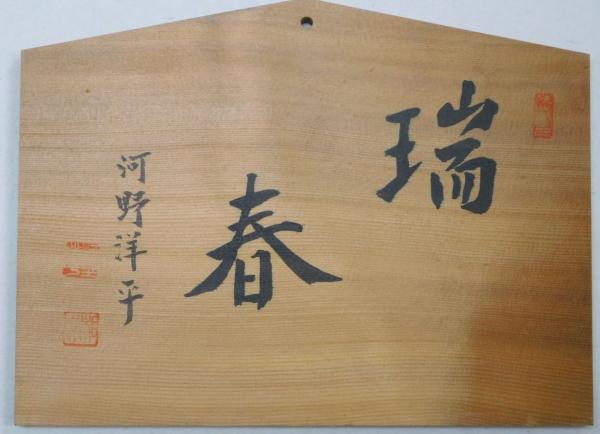 瑞春
河野洋平